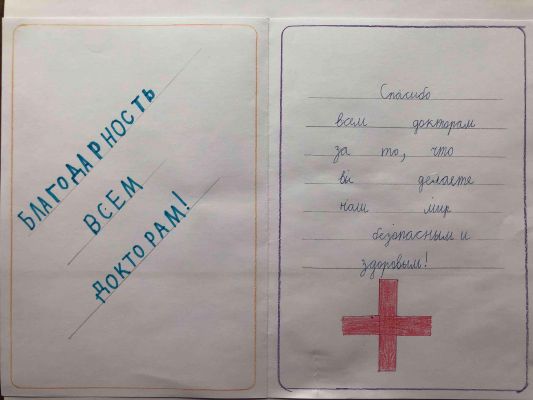 БЛАГОДАРНОСТЬ
ВСЕМ
ДОКТОРАМ!
Спасибо
всем докторам
за то, что
вы делаете
наш мир
безопасным и
здоровым!